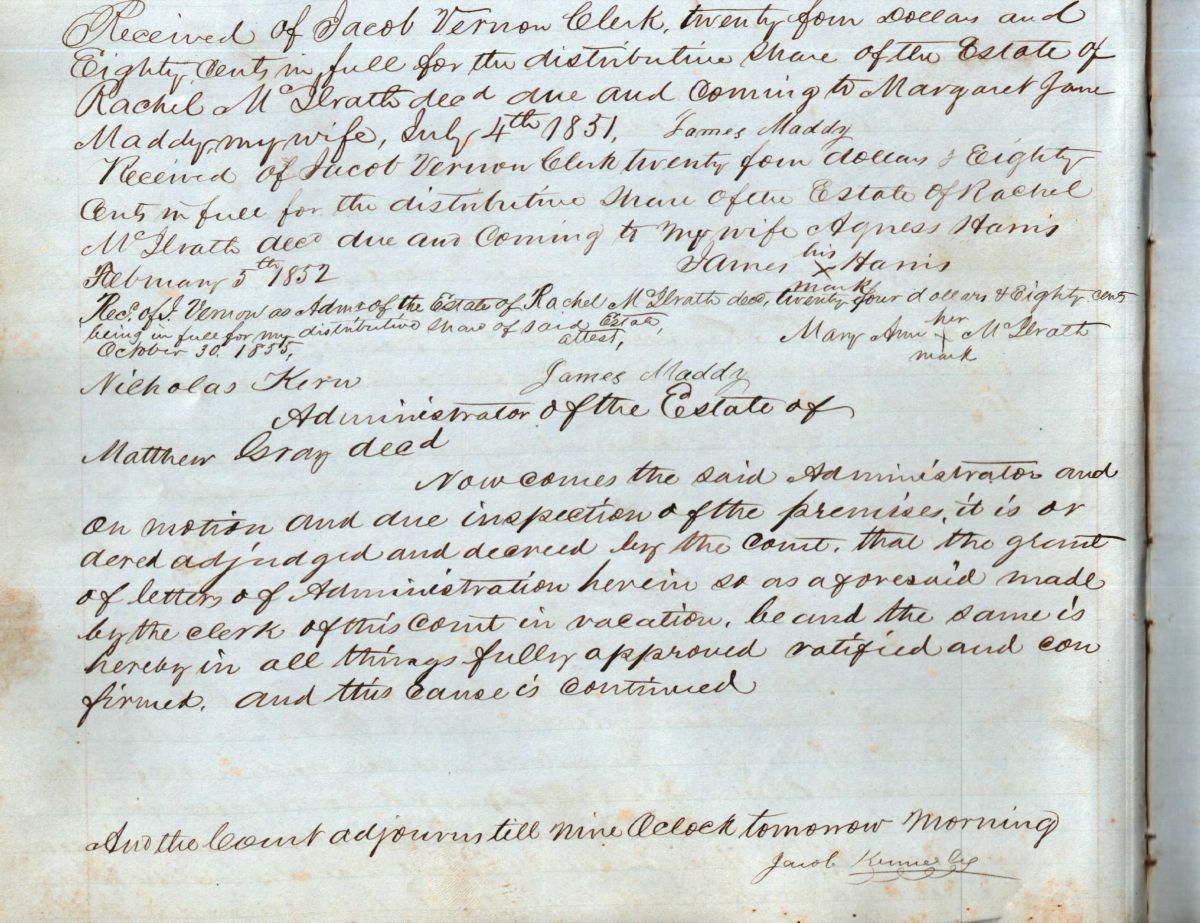 Received of Jacob Vernon Clerk, twenty four Dollars and
Eighty cents in full for the distributive share of the Estate of
Rachel McIlrath decd due and coming to Margaret Jane
Maddy my wife, July 4th 1851, James Maddy
Received of Jacob Vernon Clerk twenty four dollars & Eighty
Cents in full for the distributive share of the Estate of Rachel
McIlrath decd due and coming to my wife Agness Harris
February 5th 1852 James his X mark Harris
Rec. of J. Vernon as Admr of the Estate of Rachel McIlrath decd, twenty four dollars & Eighty cents
being in full for my distributive share of said Estate,
October 30. 1855, attest, Mary Ann her X mark McIlrath
Nicholas Kern James Maddy
Administrator of the Estate of
Matthew Gray decd
Now comes the said Administrator and
on motion and due inspection of the premises, it is or
dered adjudged and decreed by the court. that the grant
of letters of Administration herein so as aforesaid made
by the clerk of this Court in vacation, be and the same is
hereby in all things fully approved ratified and con
firmed. and this cause is continued
And the Court adjourns till nine Oclock tomorrow morning
Jacob Kinnerly